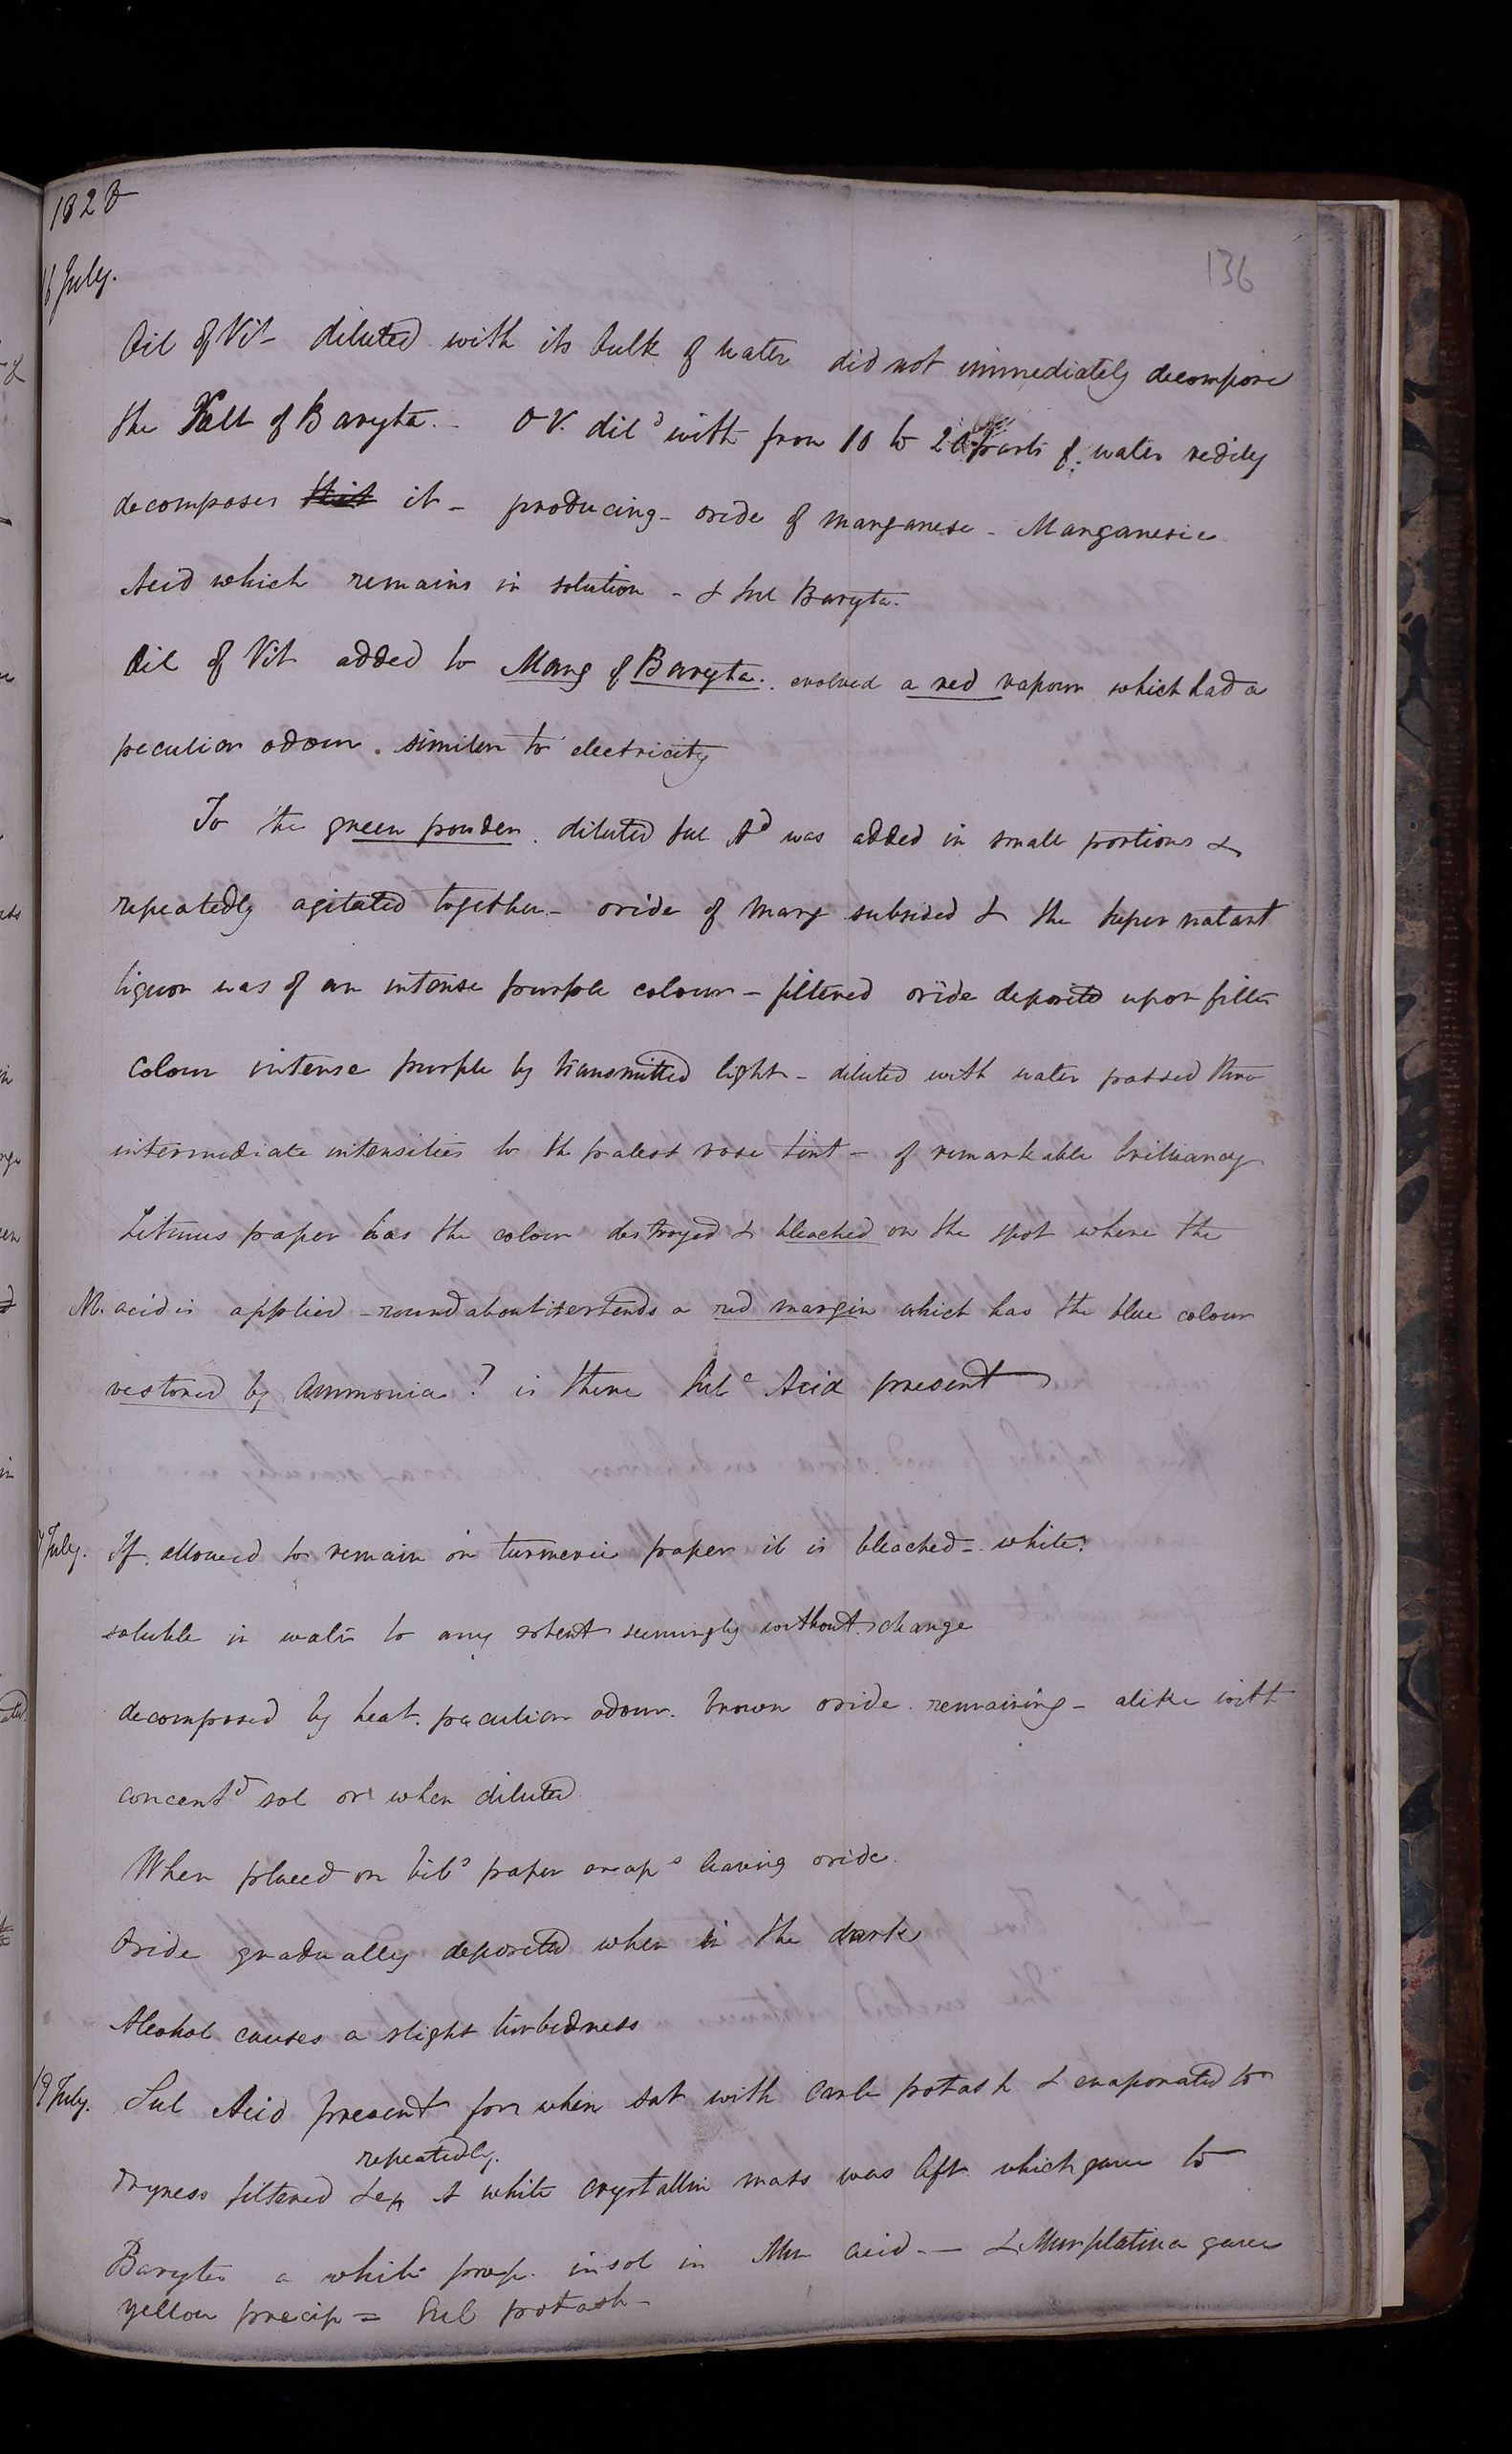 1828
16 July.
136
Oil of Vit - diluted with its bulk of water did not immediately decompose
the Salt of Baryta. - O V. dild with from 10 to 20 parts of water redily
decomposes it - producing - oxide of manganese - Manganesic
Acid which remains in solution - & Sul Baryta.
Oil of Vit added to Mang of Baryta. evolved a red vapour which had a
peculiar odour. similar to electricity
To the green powder. diluted Sul Ad was added in small portions &
repeatedly agitated together - oxide of Mang subsided & the super natant
liquor was of an intense purple colour - filtered oxide deposited upon filter
colour intense purple by transmitted light - diluted with water passed thro
intermediate intensities to the palest rose tint - of remarkable brilliancy
Litmus paper has the colour destroyed & bleached on the spot where the
M. acid is applied - round about it extends a red margin which has the blue colour
restored by Ammonia? is there Sulc Acid present
7 July. If allowed to remain on turmeric paper it is bleached - white.
soluble in water to any extent seemingly without change
decomposed by heat. peculiar odour. brown oxide. remaining - alike with
concentd sol or when diluted
When placed on bibs paper evaps leaving oxide.
Oxide gradually deposited when in the dark
Alcohol causes a slight turbidness
19 July. Sul Acid present for when sat with Carb potash & evaporated to
repeatedly.
dryness filtered &c A white crystallin mass was left which gave to
Barytes a white prep. insol in Mur acid - & Mur platina gave
yellow precip = Sul potash -